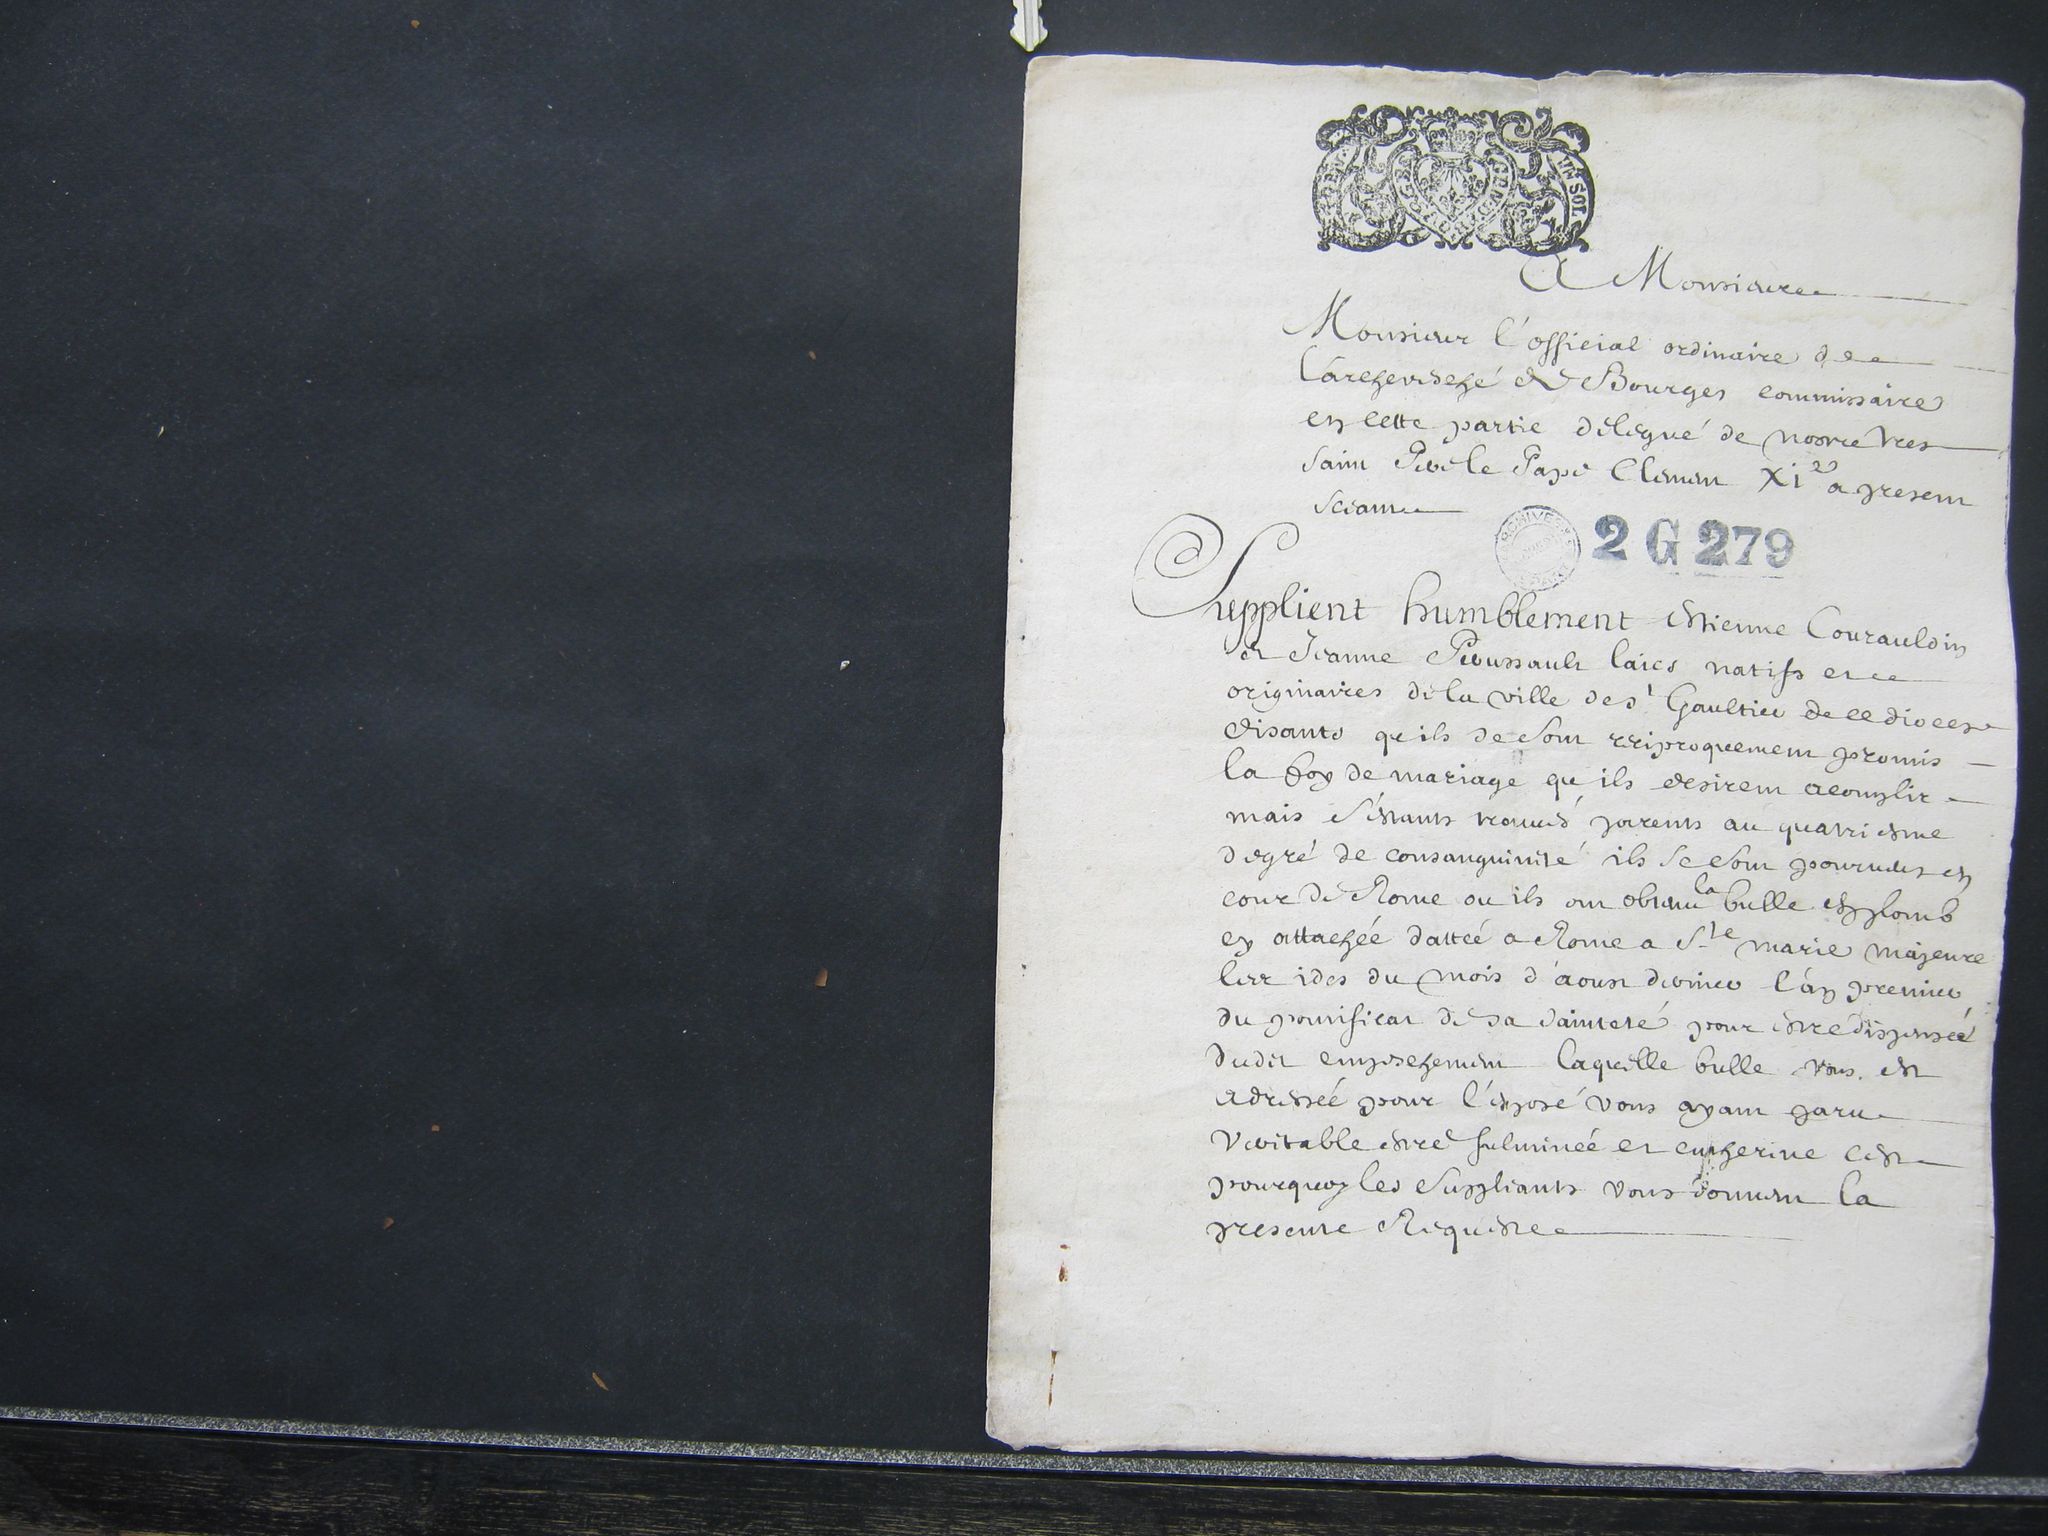 UN SOL
A Monsieur
Monsieur l'official ordinaire de
l'archevesché de Bourges commissaire
en cette partie delegué de nostre tres
saint Pere le Pape Clement XIe a present
seant
2 G 279
Supplient humblement Estienne Couraudin
et Jeanne Peroussault laics natifs et
originaires de la ville de St Gaultier de ce diocese
disants qu'ils se sont reciproquement promis
la foy de mariage qu'ils desirent acomplir
mais s'estants trouvés parents au quatriesme
degré de consanguinité ils se sont pourvus en
cour de Rome ou ils ont obtenu la bulle en plomb
cy attachée dattée a Rome a Ste marie majeure
les ides du mois d'aoust dernier l'an premier
du pontificat de sa sainteté pour estre dispensé
dudit empeschement laquelle bulle vous est
adressée pour l'exposé vous ayant paru
veritable estre fulminée et entherine c'est
pourquoy les supliants vous donnent la
presente Requeste